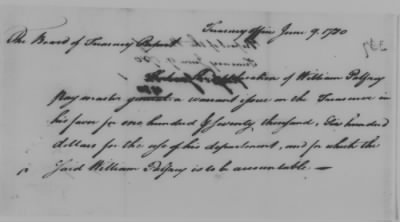 Treasury Office June 9. 1780
The Board of Treasury Report
That on the application of William Palfrey
Paymaster general a warrant issue on the Treasurer in
his favor for one hundred & seventy thousand, two hundred
dollars for the use of his department, and for which the
said William Palfrey is to be accountable.—